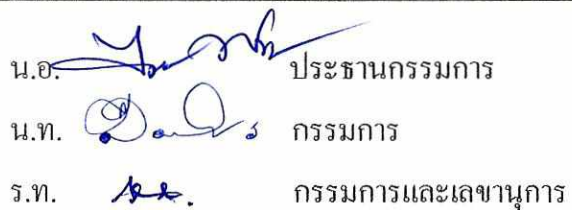 น.อ. ประธานกรรมการ
น.ท. กรรมการ
ร.ท. กรรมการและเลขานุการ